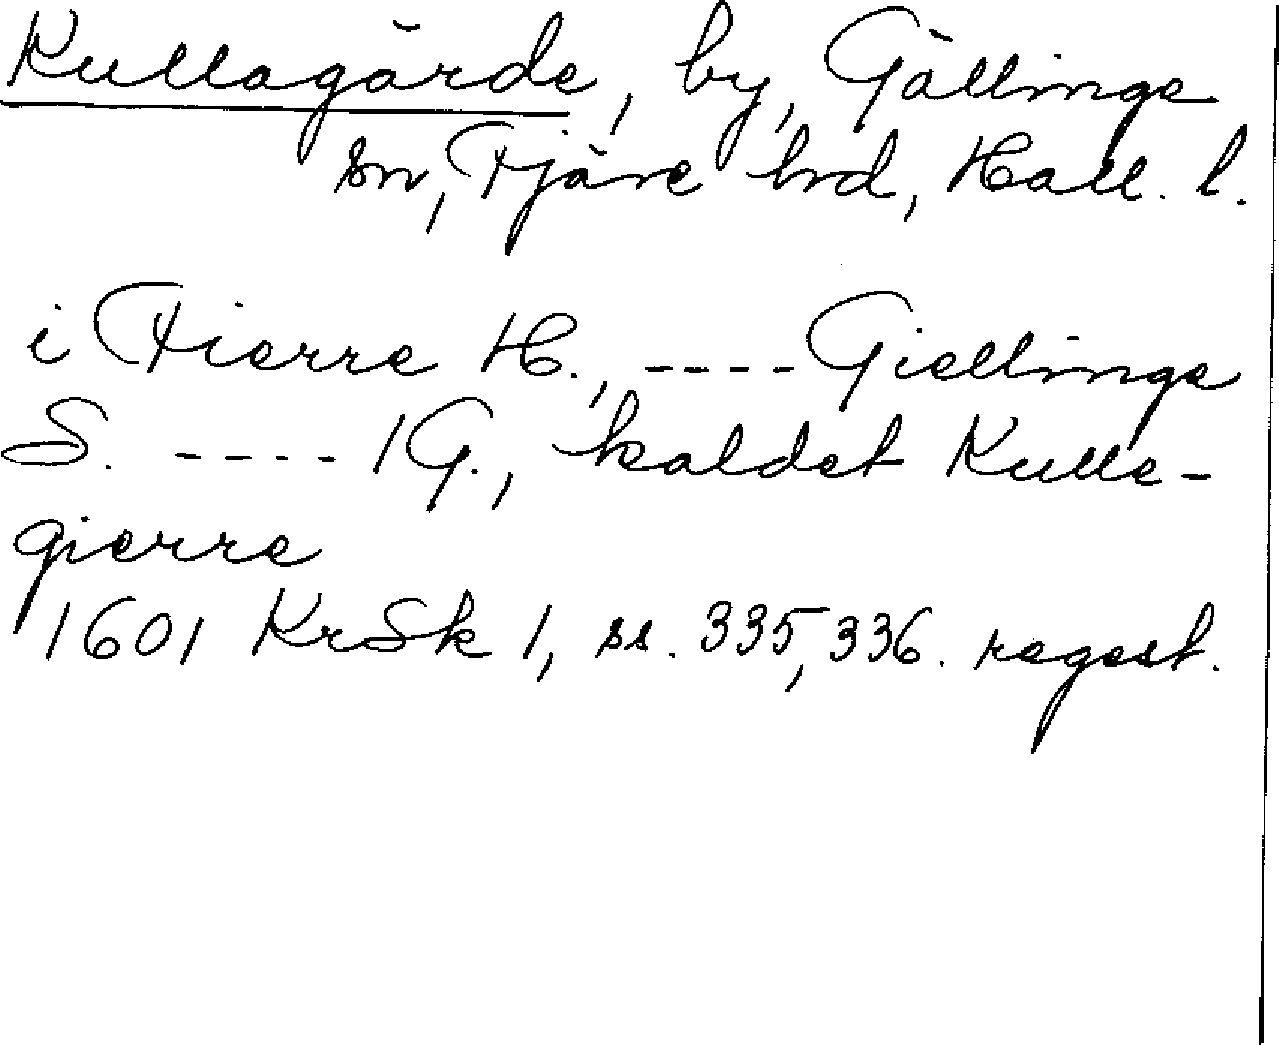 Kullagärde, by, Gällinge
sn, Fjäre hrd, Hall. l.
i Fierre H., ---- Giellinge
S. ---- 1 G., kaldet Kulle-
gierre
1601 KrSk 1, ss. 335, 336. regest.